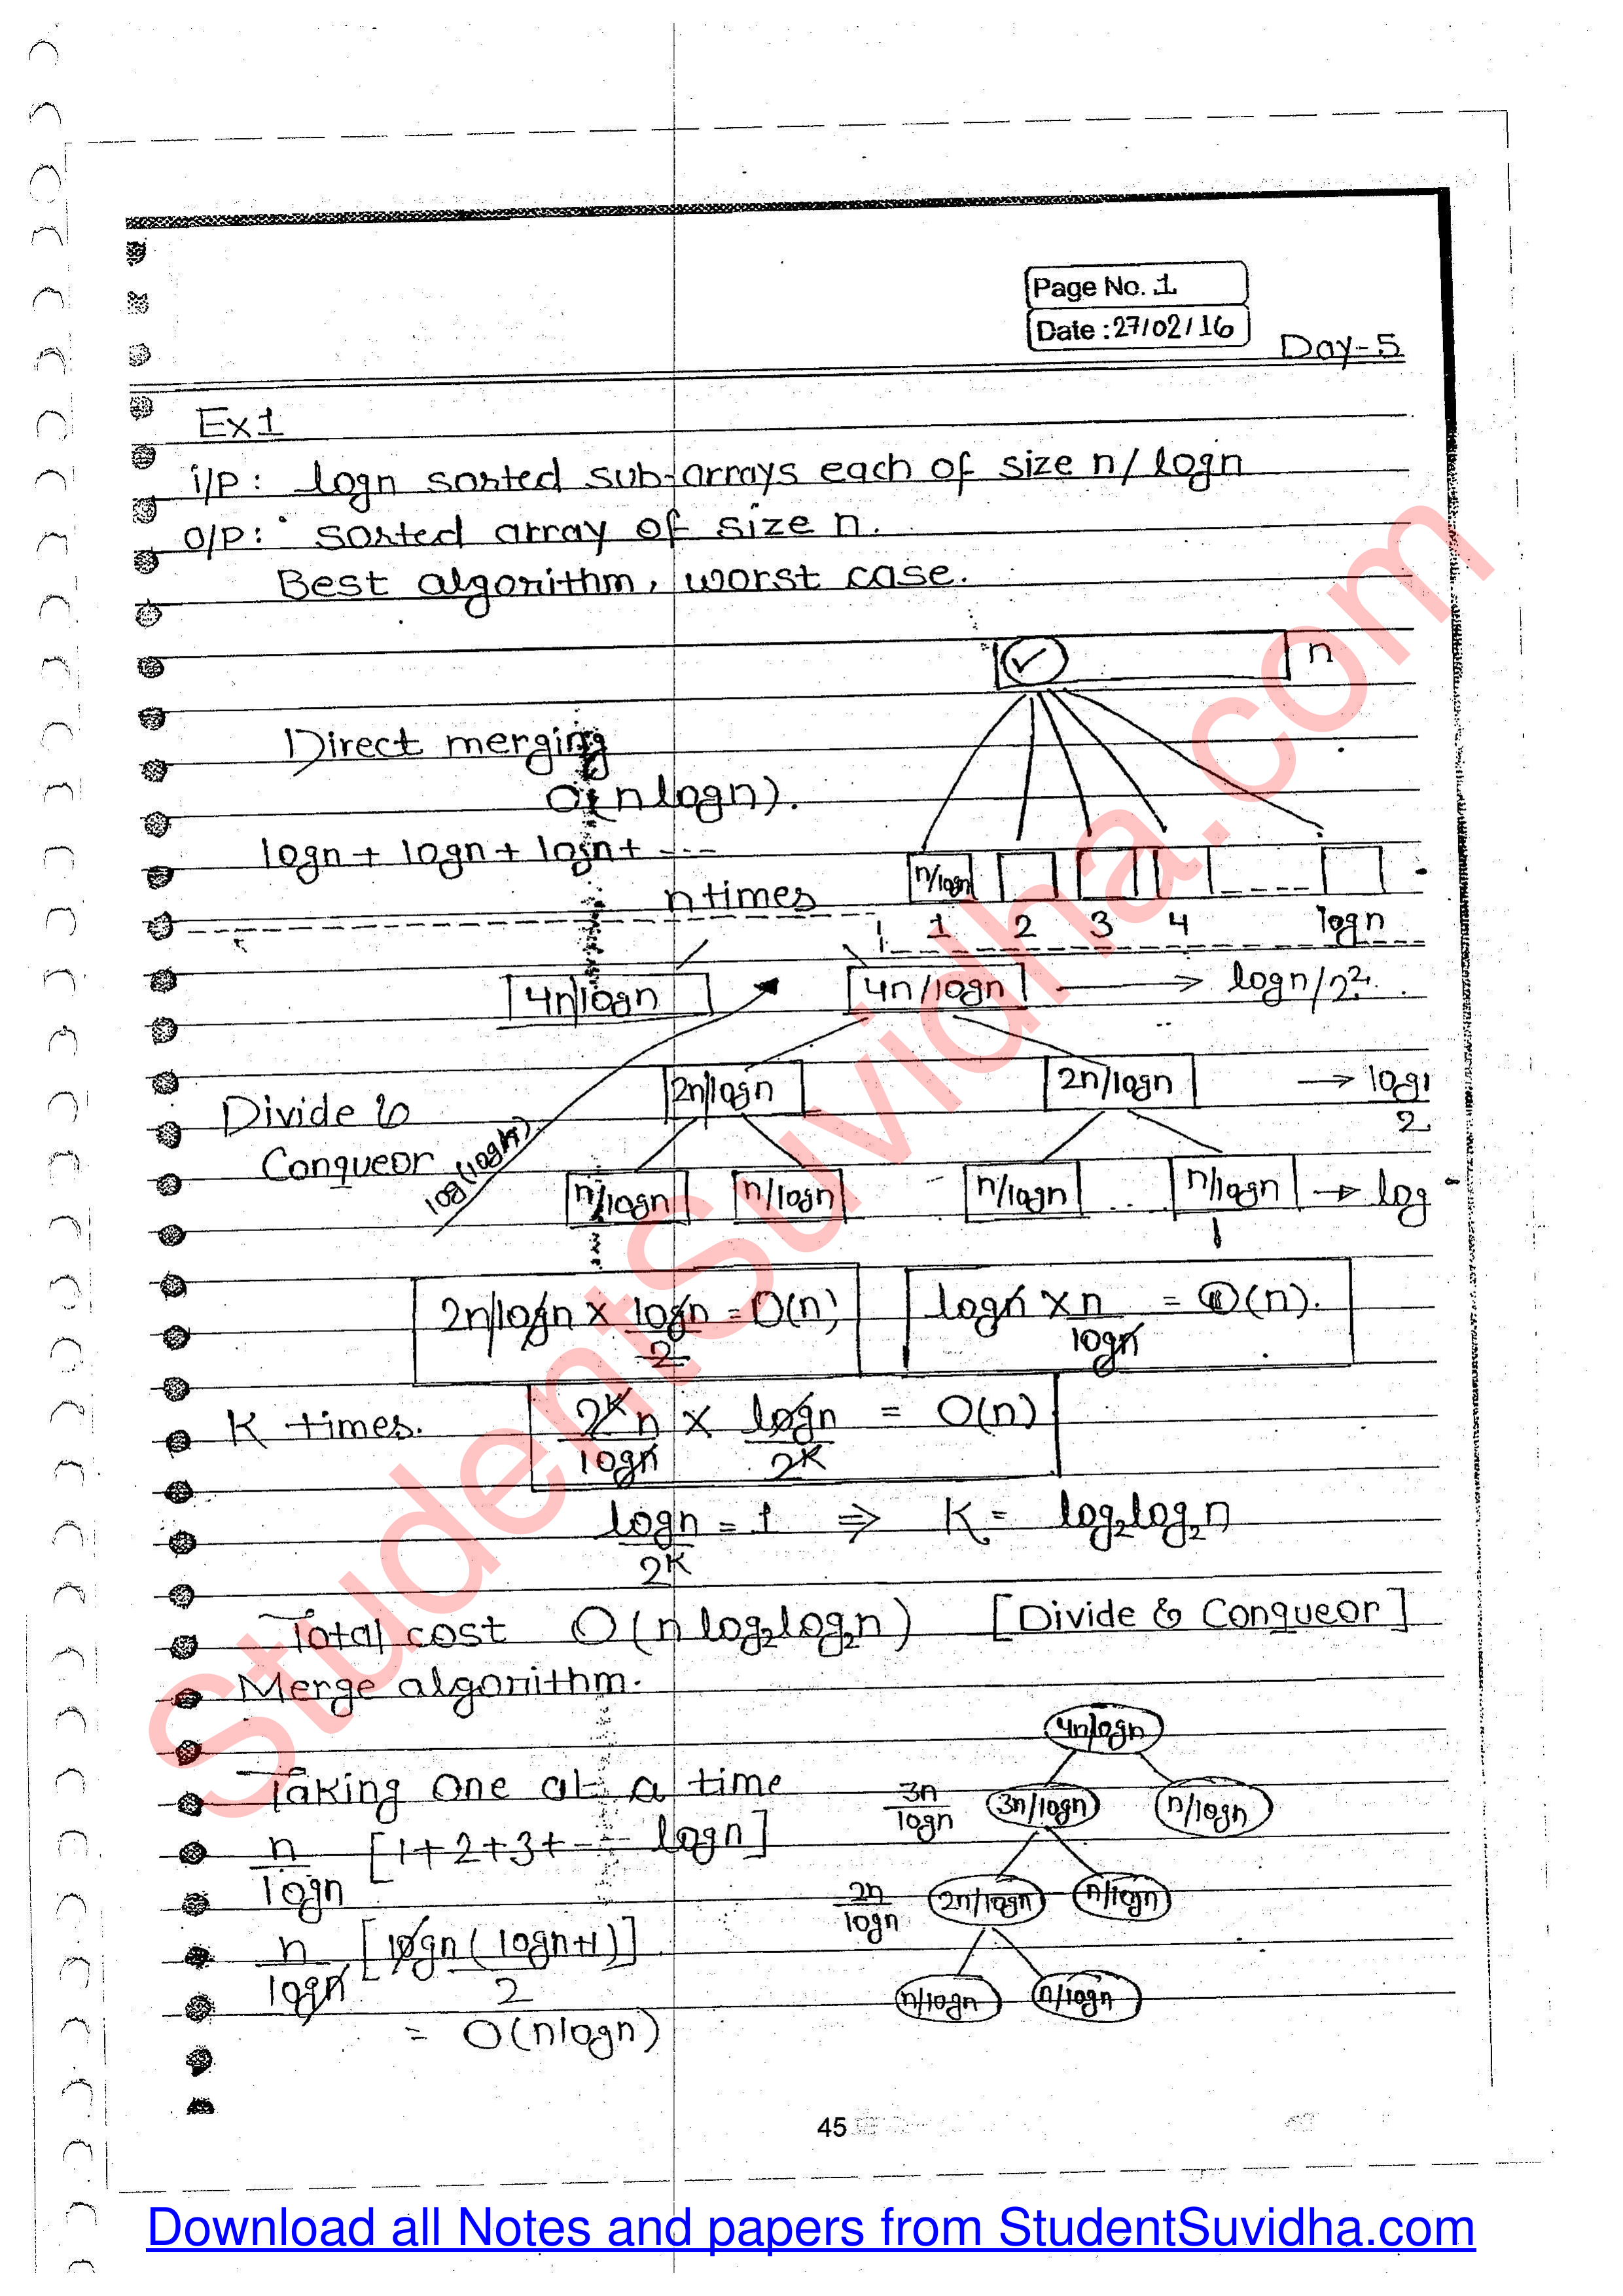 Page No. 1
Date : 27/02/16
Day-5
Ex1
i/p: logn sorted sub-arrays each of size n/logn
o/p: sorted array of size n.
Best algorithm, worst case.
n
Direct merging
O(nlogn).
logn + logn + logn + ---
n times
n/logn
1 2 3 4 logn
4n/logn 4n/logn → logn/2².
2n/logn 2n/logn → logn/2
Divide &
Conqueor
log(logn).
n/logn n/logn n/logn .. n/logn → log
2n/logn × logn/2 = O(n) logn × n/logn = O(n).
K times. 2^K n/logn × logn/2^K = O(n)
logn/2^K = 1 ⇒ K = log₂log₂n
Total cost O(n log₂log₂n) [Divide & Conqueor]
Merge algorithm.
4n/logn
Taking one at a time
3n/logn 3n/logn n/logn
n/logn [1+2+3+--- logn]
2n/logn 2n/logn n/logn
n/logn [logn(logn+1)/2]
n/logn n/logn
= O(nlogn)
45
StudentSuvidha.com
Download all Notes and papers from StudentSuvidha.com